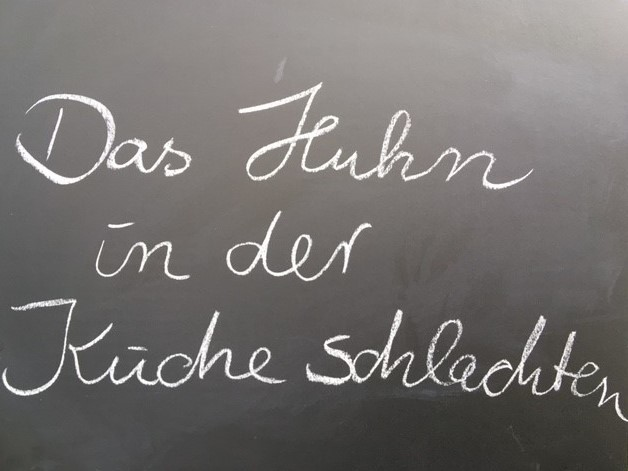 Das Huhn
in der
Küche schlachten